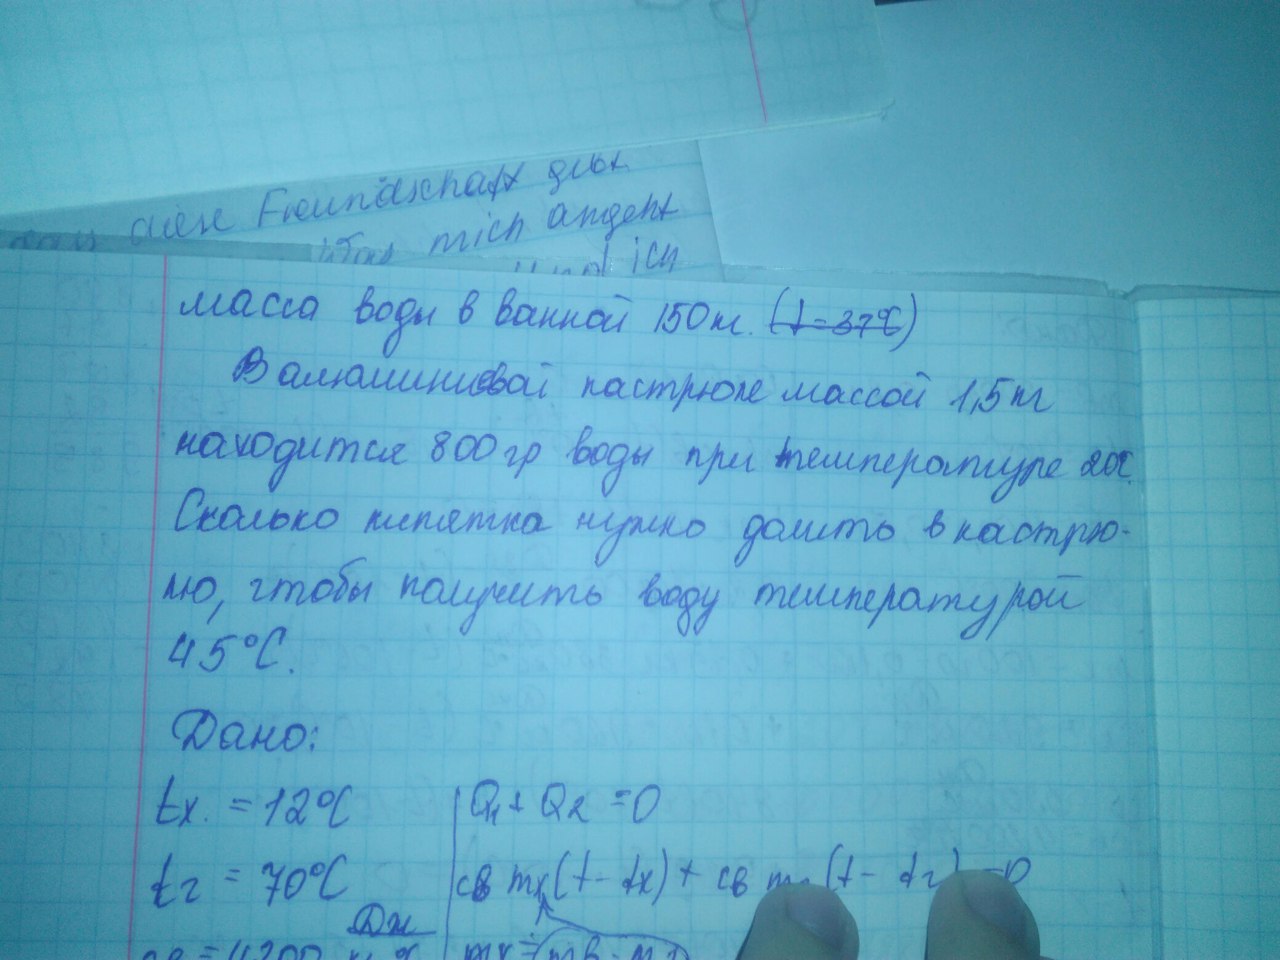 diese Freundschaft gibt
mich angeht
ich
масса воды в ванной 150 кг. (t=37°C)
В алюминиевой кастрюле массой 1,5 кг
находится 800 гр воды при температуре 20°C.
Сколько кипятка нужно долить в кастрю-
лю, чтобы получить воду температурой
45°C.
Дано:
tх. = 12°C
Q₁ + Q₂ = 0
tг = 70°C
св mх(t - tх) + св (t - tг) = 0
св = 4200 Дж
mх =